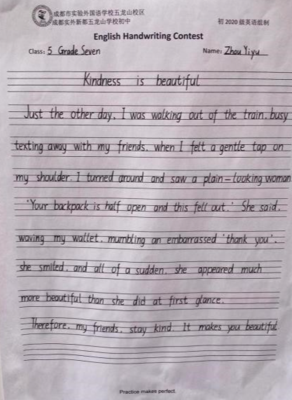 成都市实验外国语学校五龙山校区
成都实外新都五龙山学校初中
初2020级英语组制
English Handwriting Contest
Class: 5 Grade Seven Name: Zhou Yiyu
Kindness is beautiful
Just the other day, I was walking out of the train, busy
texting away with my friends, when I felt a gentle tap on
my shoulder. I turned around and saw a plain-looking woman
'Your backpack is half open and this fell out.' She said,
waving my wallet, mumbling an embarrassed 'thank you',
she smiled, and all of a sudden, she appeared much
more beautiful than she did at first glance.
Therefore, my friends, stay kind. It makes you beautiful
Practice makes perfect.